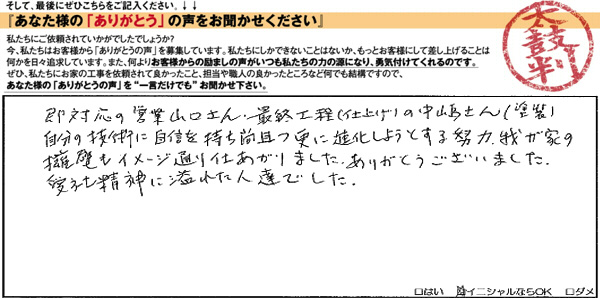 そして、最後にぜひこちらをご記入ください。↓↓
『あなた様の「ありがとう」の声をお聞かせください』
私たちにご依頼されていかがでしたでしょうか?
今、私たちはお客様から「ありがとうの声」を募集しています。私たちにしかできないことはないか、もっとお客様にして差し上げることは
何かを日々追求しています。また、何よりお客様からの励ましの声がいつも私たちの力の源になり、勇気付けてくれるのです。
ぜひ、私たちにお家の工事を依頼されて良かったこと、担当や職人の良かったところなど何でも結構ですので、
あなた様の「ありがとうの声」を“一言だけでも”お聞かせ下さい。
太鼓判
即対応の営業山口さん・最終工程(仕上げ)の中島さん(塗装)
自分の技術に自信を持ち尚且つ更に進化しようとする努力、我が家の
擁壁もイメージ通り仕あがりました。ありがとうございました。
精神に溢れた人達でした。
□はい ☑イニシャルならOK □ダメ